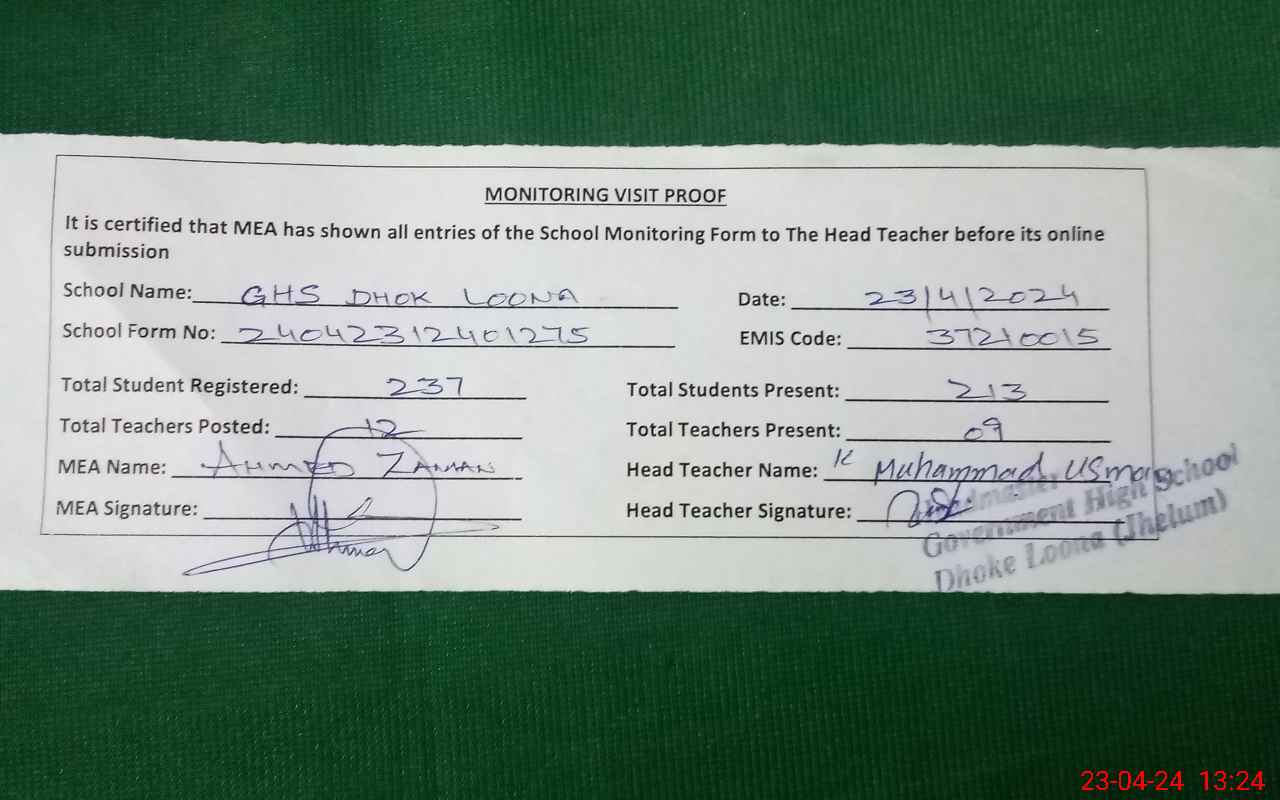 MONITORING VISIT PROOF
It is certified that MEA has shown all entries of the School Monitoring Form to The Head Teacher before its online
submission
School Name: GHS DHOK LOONA Date: 23/4/2024
School Form No: 24042312401275 EMIS Code: 37210015
Total Student Registered: 237 Total Students Present: 213
Total Teachers Posted: 12 Total Teachers Present: 09
MEA Name: AHMED ZAMAN Head Teacher Name: K Muhammad Usman
MEA Signature: Head Teacher Signature:
Headmaster
Government High School
Dhoke Loona (Jhelum)
23-04-24 13:24